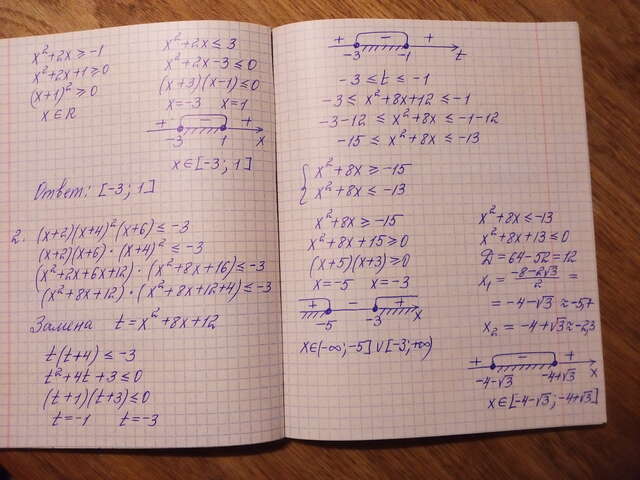 x²+2x ≥ -1
x²+2x+1 ≥ 0
(x+1)² ≥ 0
x ∈ R
x²+2x ≤ 3
x²+2x-3 ≤ 0
(x+3)(x-1) ≤ 0
x=-3 x=1
+ - +
-3 1 x
x ∈ [-3; 1]
Ответ: [-3; 1]
2. (x+2)(x+4)²(x+6) ≤ -3
(x+2)(x+6)·(x+4)² ≤ -3
(x²+2x+6x+12)·(x²+8x+16) ≤ -3
(x²+8x+12)·(x²+8x+12+4) ≤ -3
Замена t = x²+8x+12
t(t+4) ≤ -3
t²+4t+3 ≤ 0
(t+1)(t+3) ≤ 0
t=-1 t=-3
+ - +
-3 -1 t
-3 ≤ t ≤ -1
-3 ≤ x²+8x+12 ≤ -1
-3-12 ≤ x²+8x ≤ -1-12
-15 ≤ x²+8x ≤ -13
{ x²+8x ≥ -15
x²+8x ≤ -13
x²+8x ≥ -15
x²+8x+15 ≥ 0
(x+5)(x+3) ≥ 0
x=-5 x=-3
+ - +
-5 -3 x
x ∈ (-∞; -5] ∪ [-3; +∞)
x²+8x ≤ -13
x²+8x+13 ≤ 0
D = 64-52 = 12
x₁ = (-8-2√3)/2 =
= -4-√3 ≈ -5,7
x₂ = -4+√3 ≈ -2,3
+ - +
-4-√3 -4+√3 x
x ∈ [-4-√3; -4+√3]